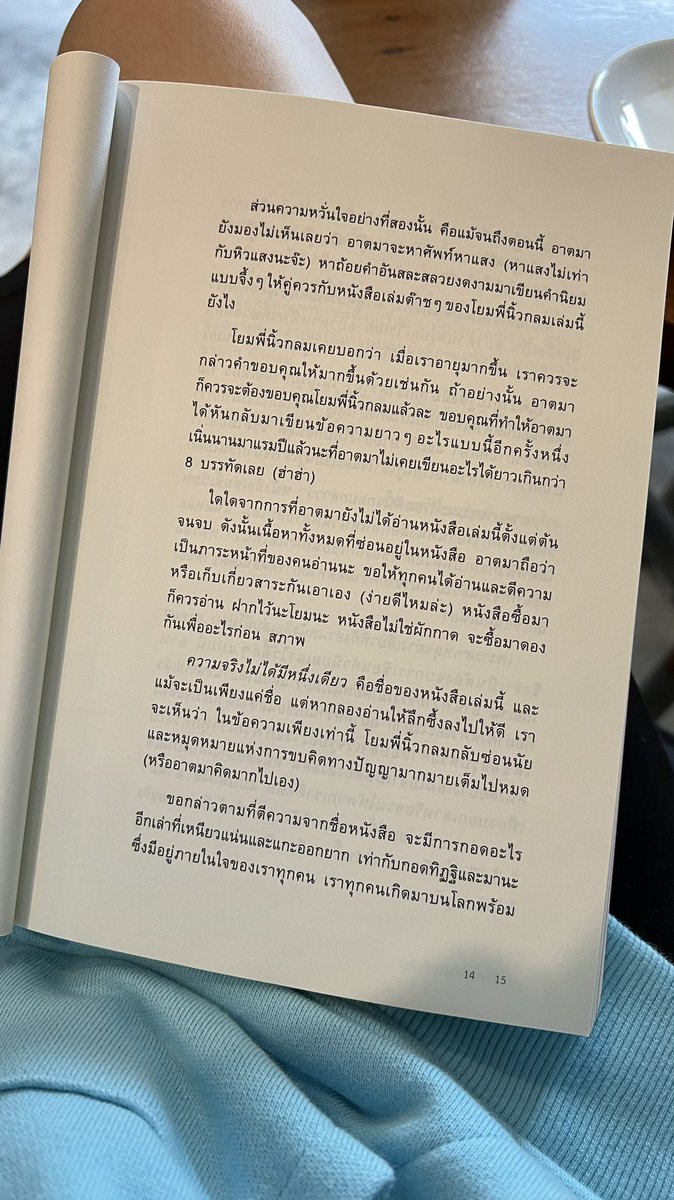 ส่วนความหวั่นใจอย่างที่สองนั้น คือแม้จนถึงตอนนี้ อาตมา
ยังมองไม่เห็นเลยว่า อาตมาจะหาศัพท์หาแสง (หาแสงไม่เท่า
กับหิวแสงนะจ๊ะ) หาถ้อยคำอันสละสลวยงดงามมาเขียนคำนิยม
แบบจึ้งๆ ให้คู่ควรกับหนังสือเล่มต๊าชๆ ของโยมพี่นิ้วกลมเล่มนี้
ยังไง
โยมพี่นิ้วกลมเคยบอกว่า เมื่อเราอายุมากขึ้น เราควรจะ
กล่าวคำขอบคุณให้มากขึ้นด้วยเช่นกัน ถ้าอย่างนั้น อาตมา
ก็ควรจะต้องขอบคุณโยมพี่นิ้วกลมแล้วละ ขอบคุณที่ทำให้อาตมา
ได้หันกลับมาเขียนข้อความยาวๆ อะไรแบบนี้อีกครั้งหนึ่ง
เนิ่นนานมาแรมปีแล้วนะที่อาตมาไม่เคยเขียนอะไรได้ยาวเกินกว่า
8 บรรทัดเลย (ฮ่าฮ่า)
ใดใดจากการที่อาตมายังไม่ได้อ่านหนังสือเล่มนี้ตั้งแต่ต้น
จนจบ ดังนั้นเนื้อหาทั้งหมดที่ซ่อนอยู่ในหนังสือ อาตมาถือว่า
เป็นภาระหน้าที่ของคนอ่านนะ ขอให้ทุกคนได้อ่านและตีความ
หรือเก็บเกี่ยวสาระกันเอาเอง (ง่ายดีไหมล่ะ) หนังสือซื้อมา
ก็ควรอ่าน ฝากไว้นะโยมนะ หนังสือไม่ใช่ผักกาด จะซื้อมาดอง
กันเพื่ออะไรก่อน สภาพ
ความจริงไม่ได้มีหนึ่งเดียว คือชื่อของหนังสือเล่มนี้ และ
แม้จะเป็นเพียงแค่ชื่อ แต่หากลองอ่านให้ลึกซึ้งลงไปให้ดี เรา
จะเห็นว่า ในข้อความเพียงเท่านี้ โยมพี่นิ้วกลมกลับซ่อนนัย
และหมุดหมายแห่งการขบคิดทางปัญญามากมายเต็มไปหมด
(หรืออาตมาคิดมากไปเอง)
ขอกล่าวตามที่ตีความจากชื่อหนังสือ จะมีการกอดอะไร
อีกเล่าที่เหนียวแน่นและแกะออกยาก เท่ากับกอดทิฏฐิและมานะ
ซึ่งมีอยู่ภายในใจของเราทุกคน เราทุกคนเกิดมาบนโลกพร้อม
14 15